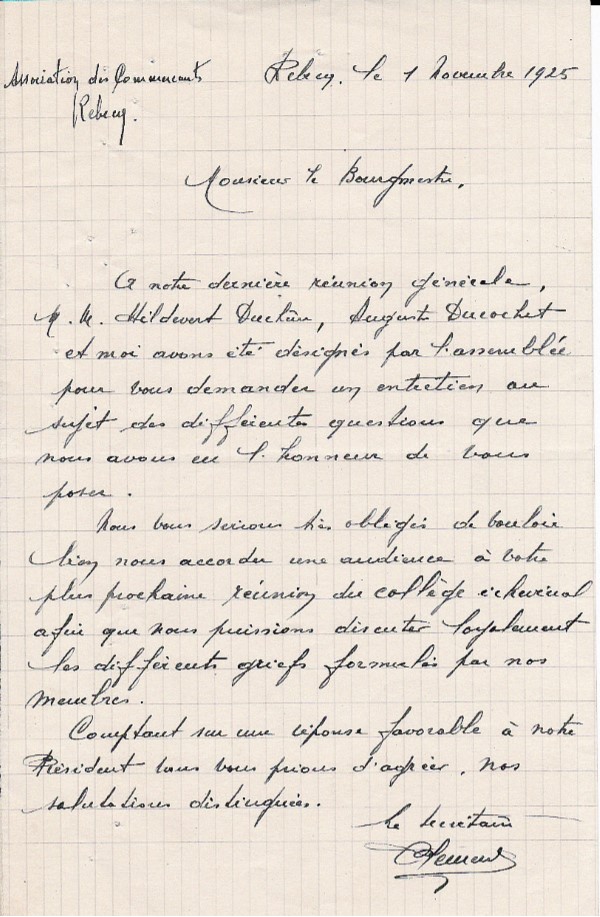 Association des Commercants
Rebecq.
Rebecq. le 1 Novembre 1925
Monsieur le Bourgmestre,
A notre dernière réunion générale,
M. M. Hildevert Duchêne, Auguste Ducochet
et moi avons été désignés par l'assemblée
pour vous demander un entretien au
sujet des différentes questions que
nous avons eu l'honneur de vous
poser.
Nous vous serions très obligés de vouloir
bien nous accorder une audience à votre
plus prochaine réunion du collège échevinal
afin que nous puissions discuter loyalement
les différents griefs formulés par nos
membres.
Comptant sur une réponse favorable à notre
Président vous prions d'agréer, nos
salutations distinguées.
Le secrétaire